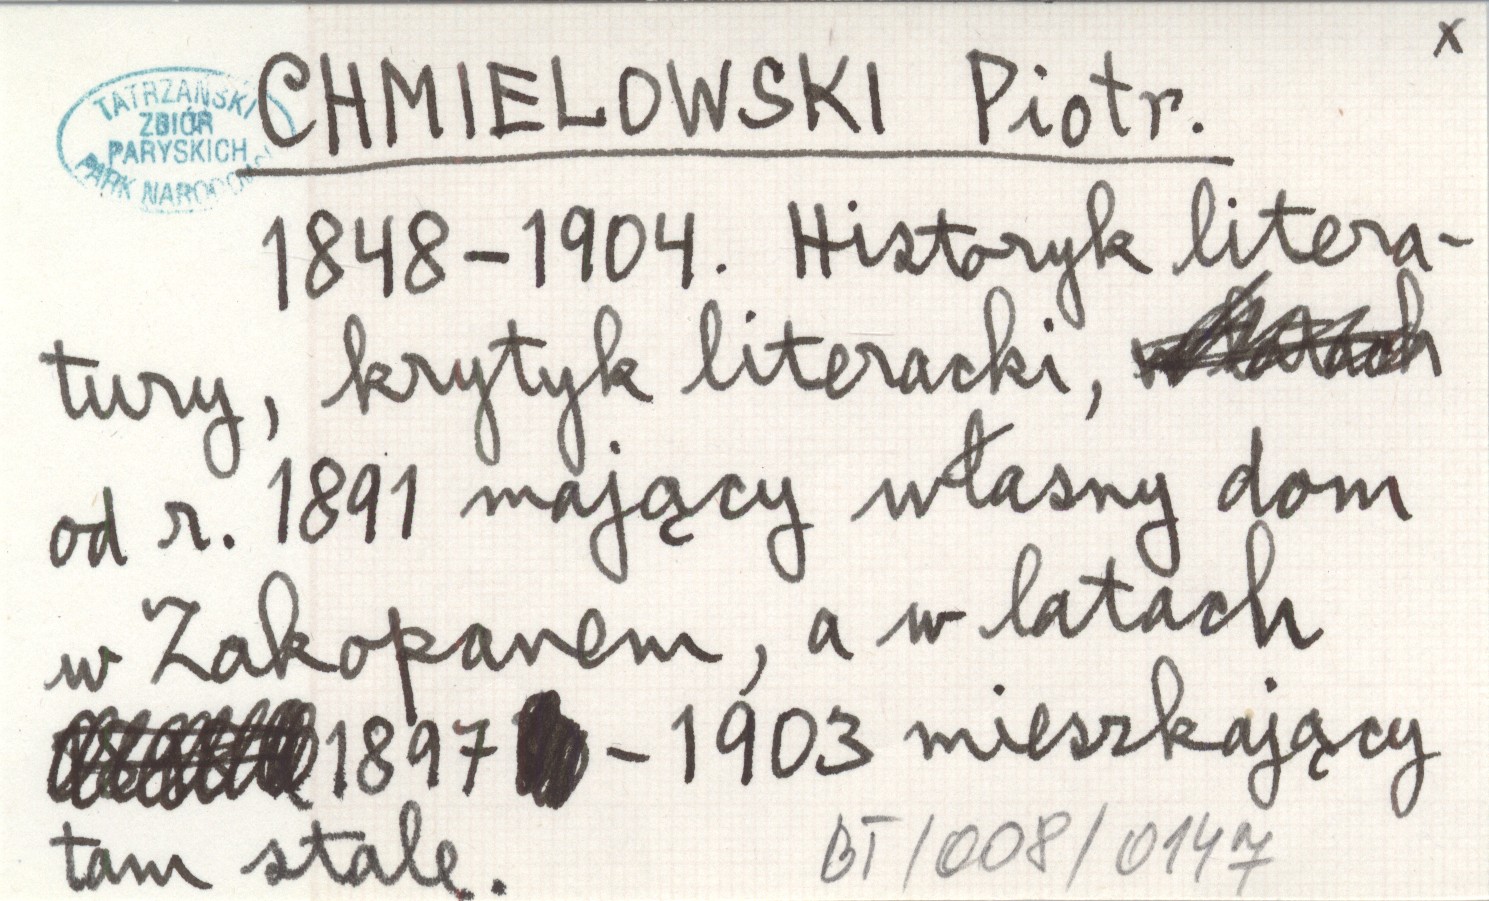 x
CHMIELOWSKI Piotr.
TATRZAŃSKI
ZBIÓR
PARYSKICH
PARK NARODOWY
1848-1904. Historyk litera-
tury, krytyk literacki,
od r. 1891 mający własny dom
w Zakopanem, a w latach
1897 - 1903 mieszkający
tam stale.
BT/008/0147